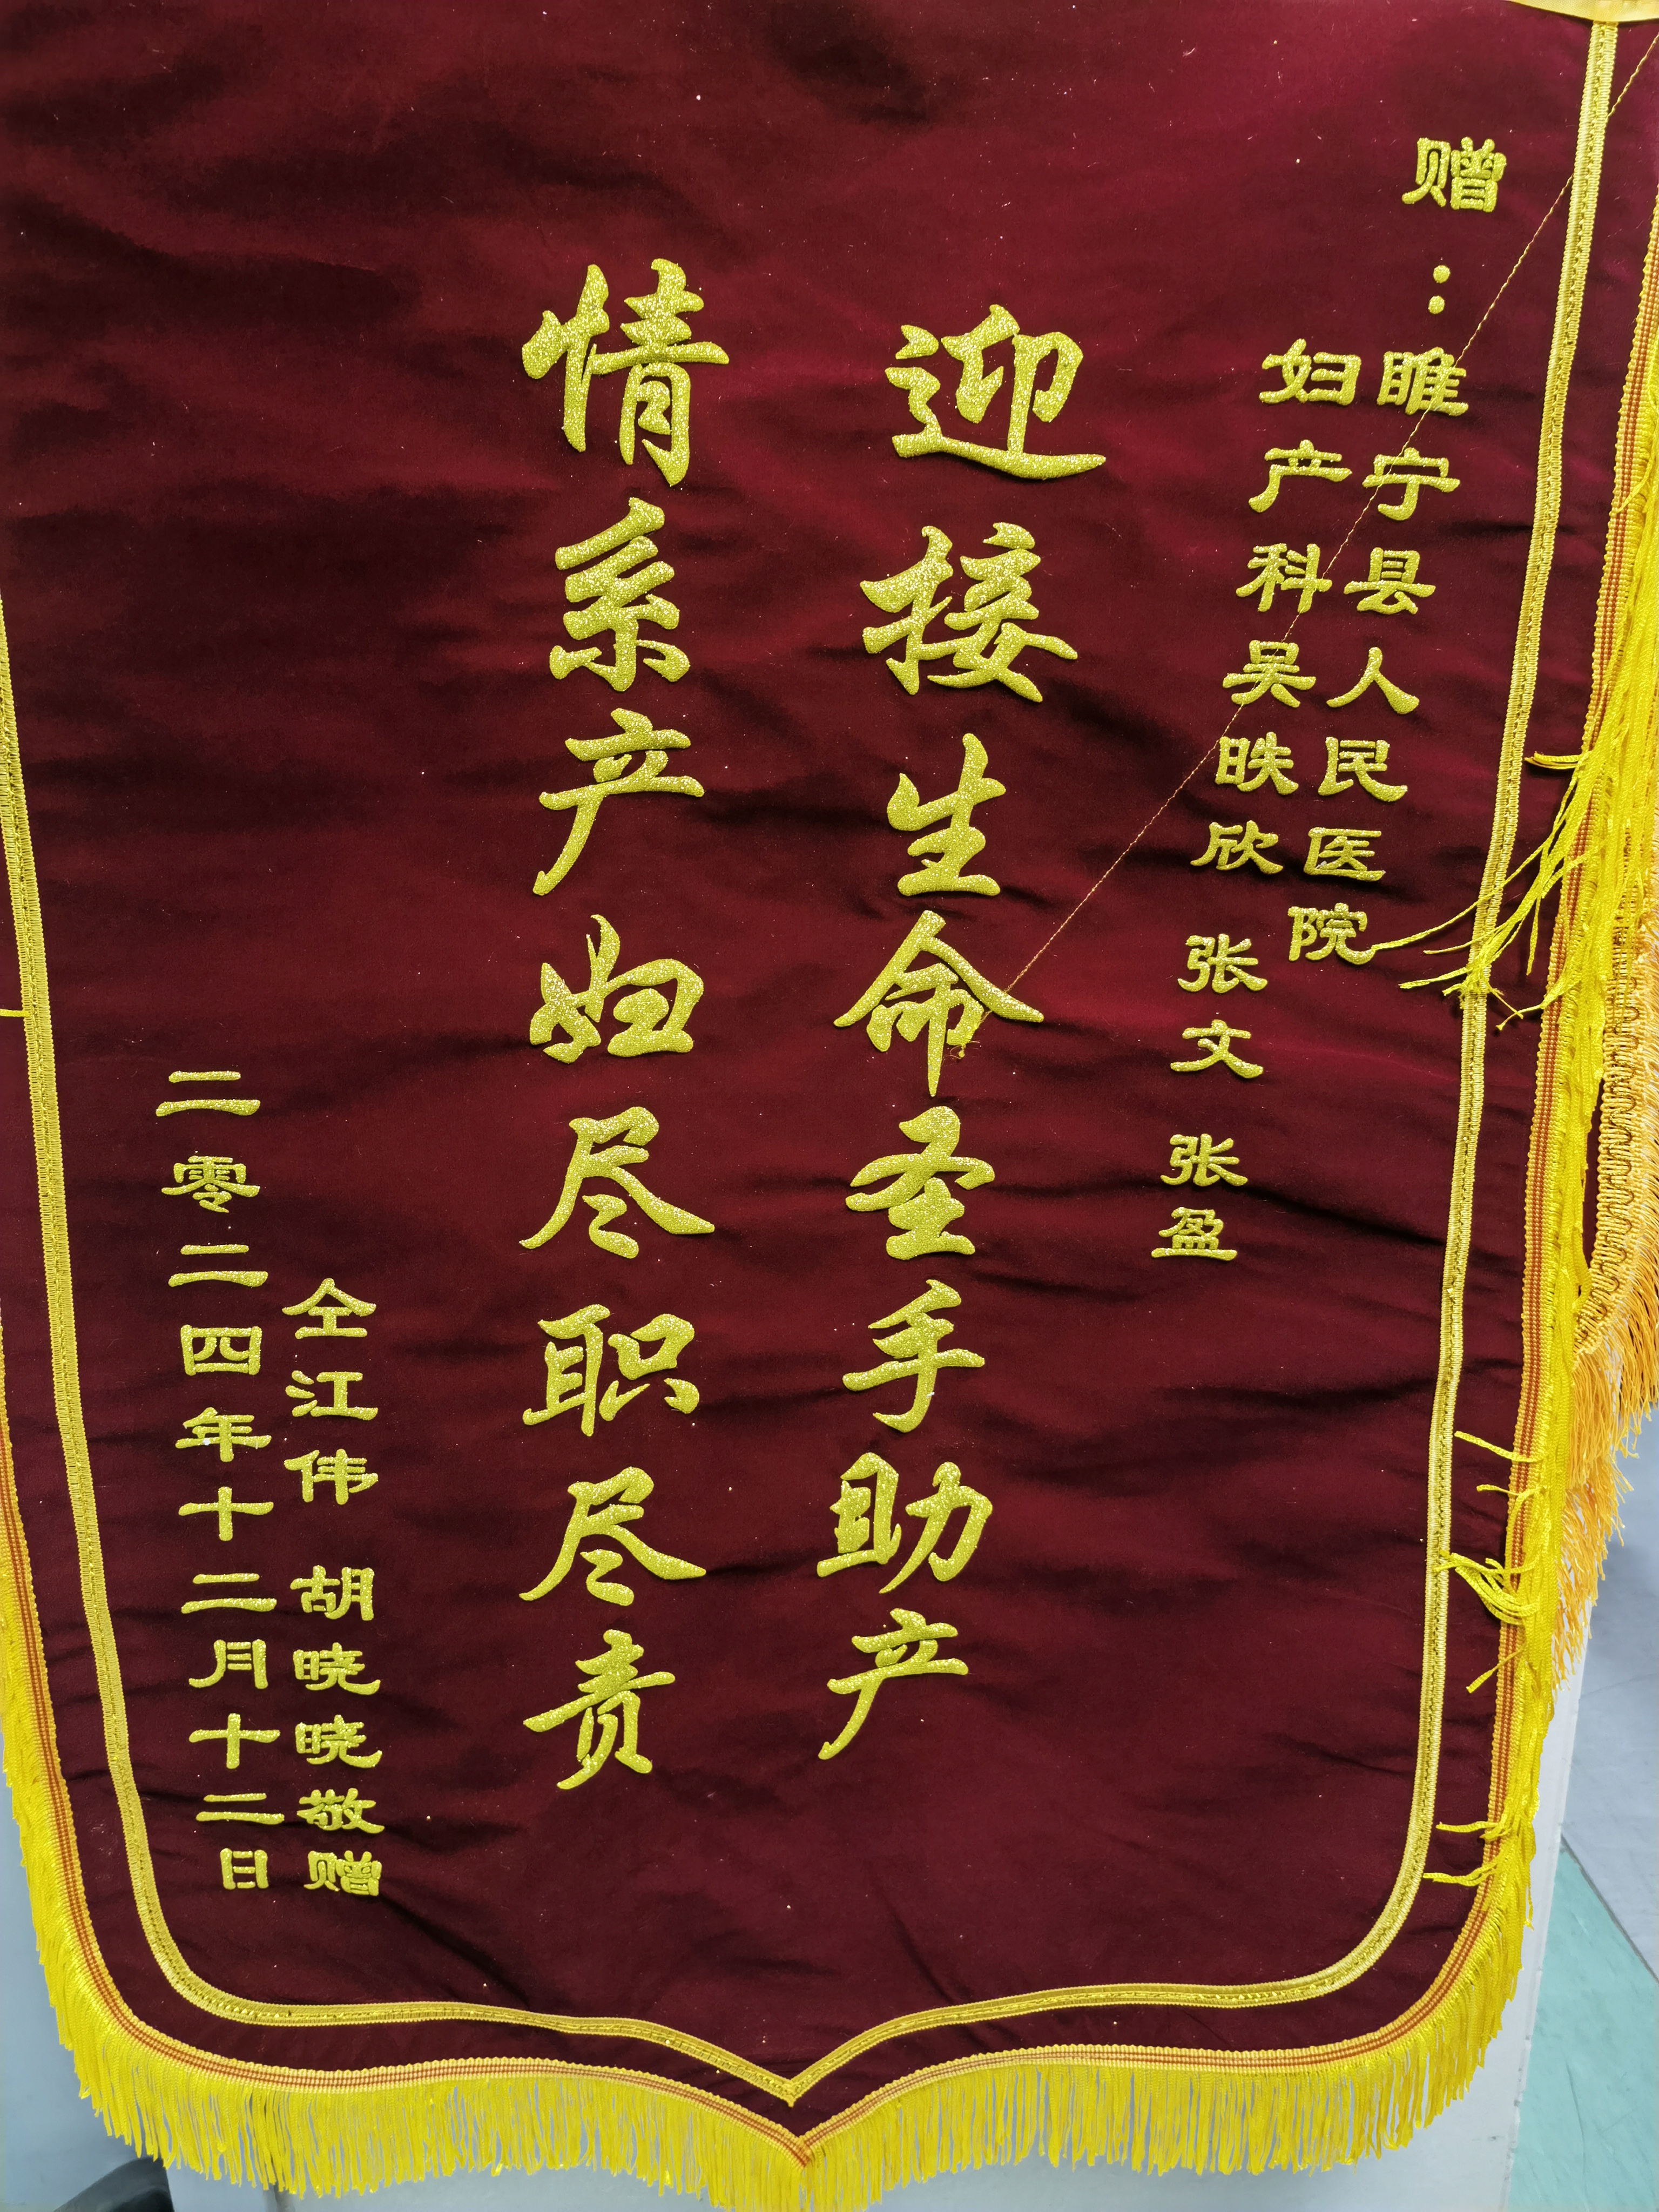 赠：睢宁县人民医院
妇产科吴昳欣 张文 张盈
迎接生命圣手助产
情系产妇尽职尽责
仝江伟 胡晓晓敬赠
二零二四年十二月十二日